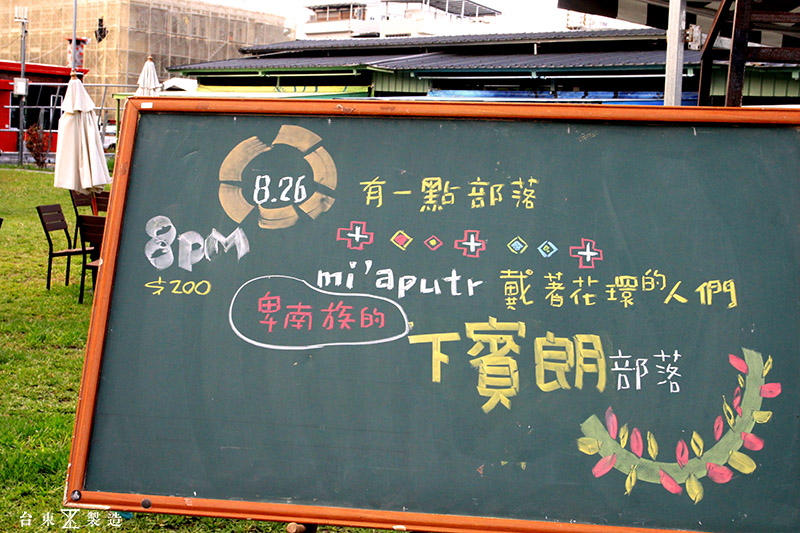 8.26
有一點部落
8pm
$200
mi'aputr 戴著花環的人們
卑南族的
下賓朗部落
台東製造